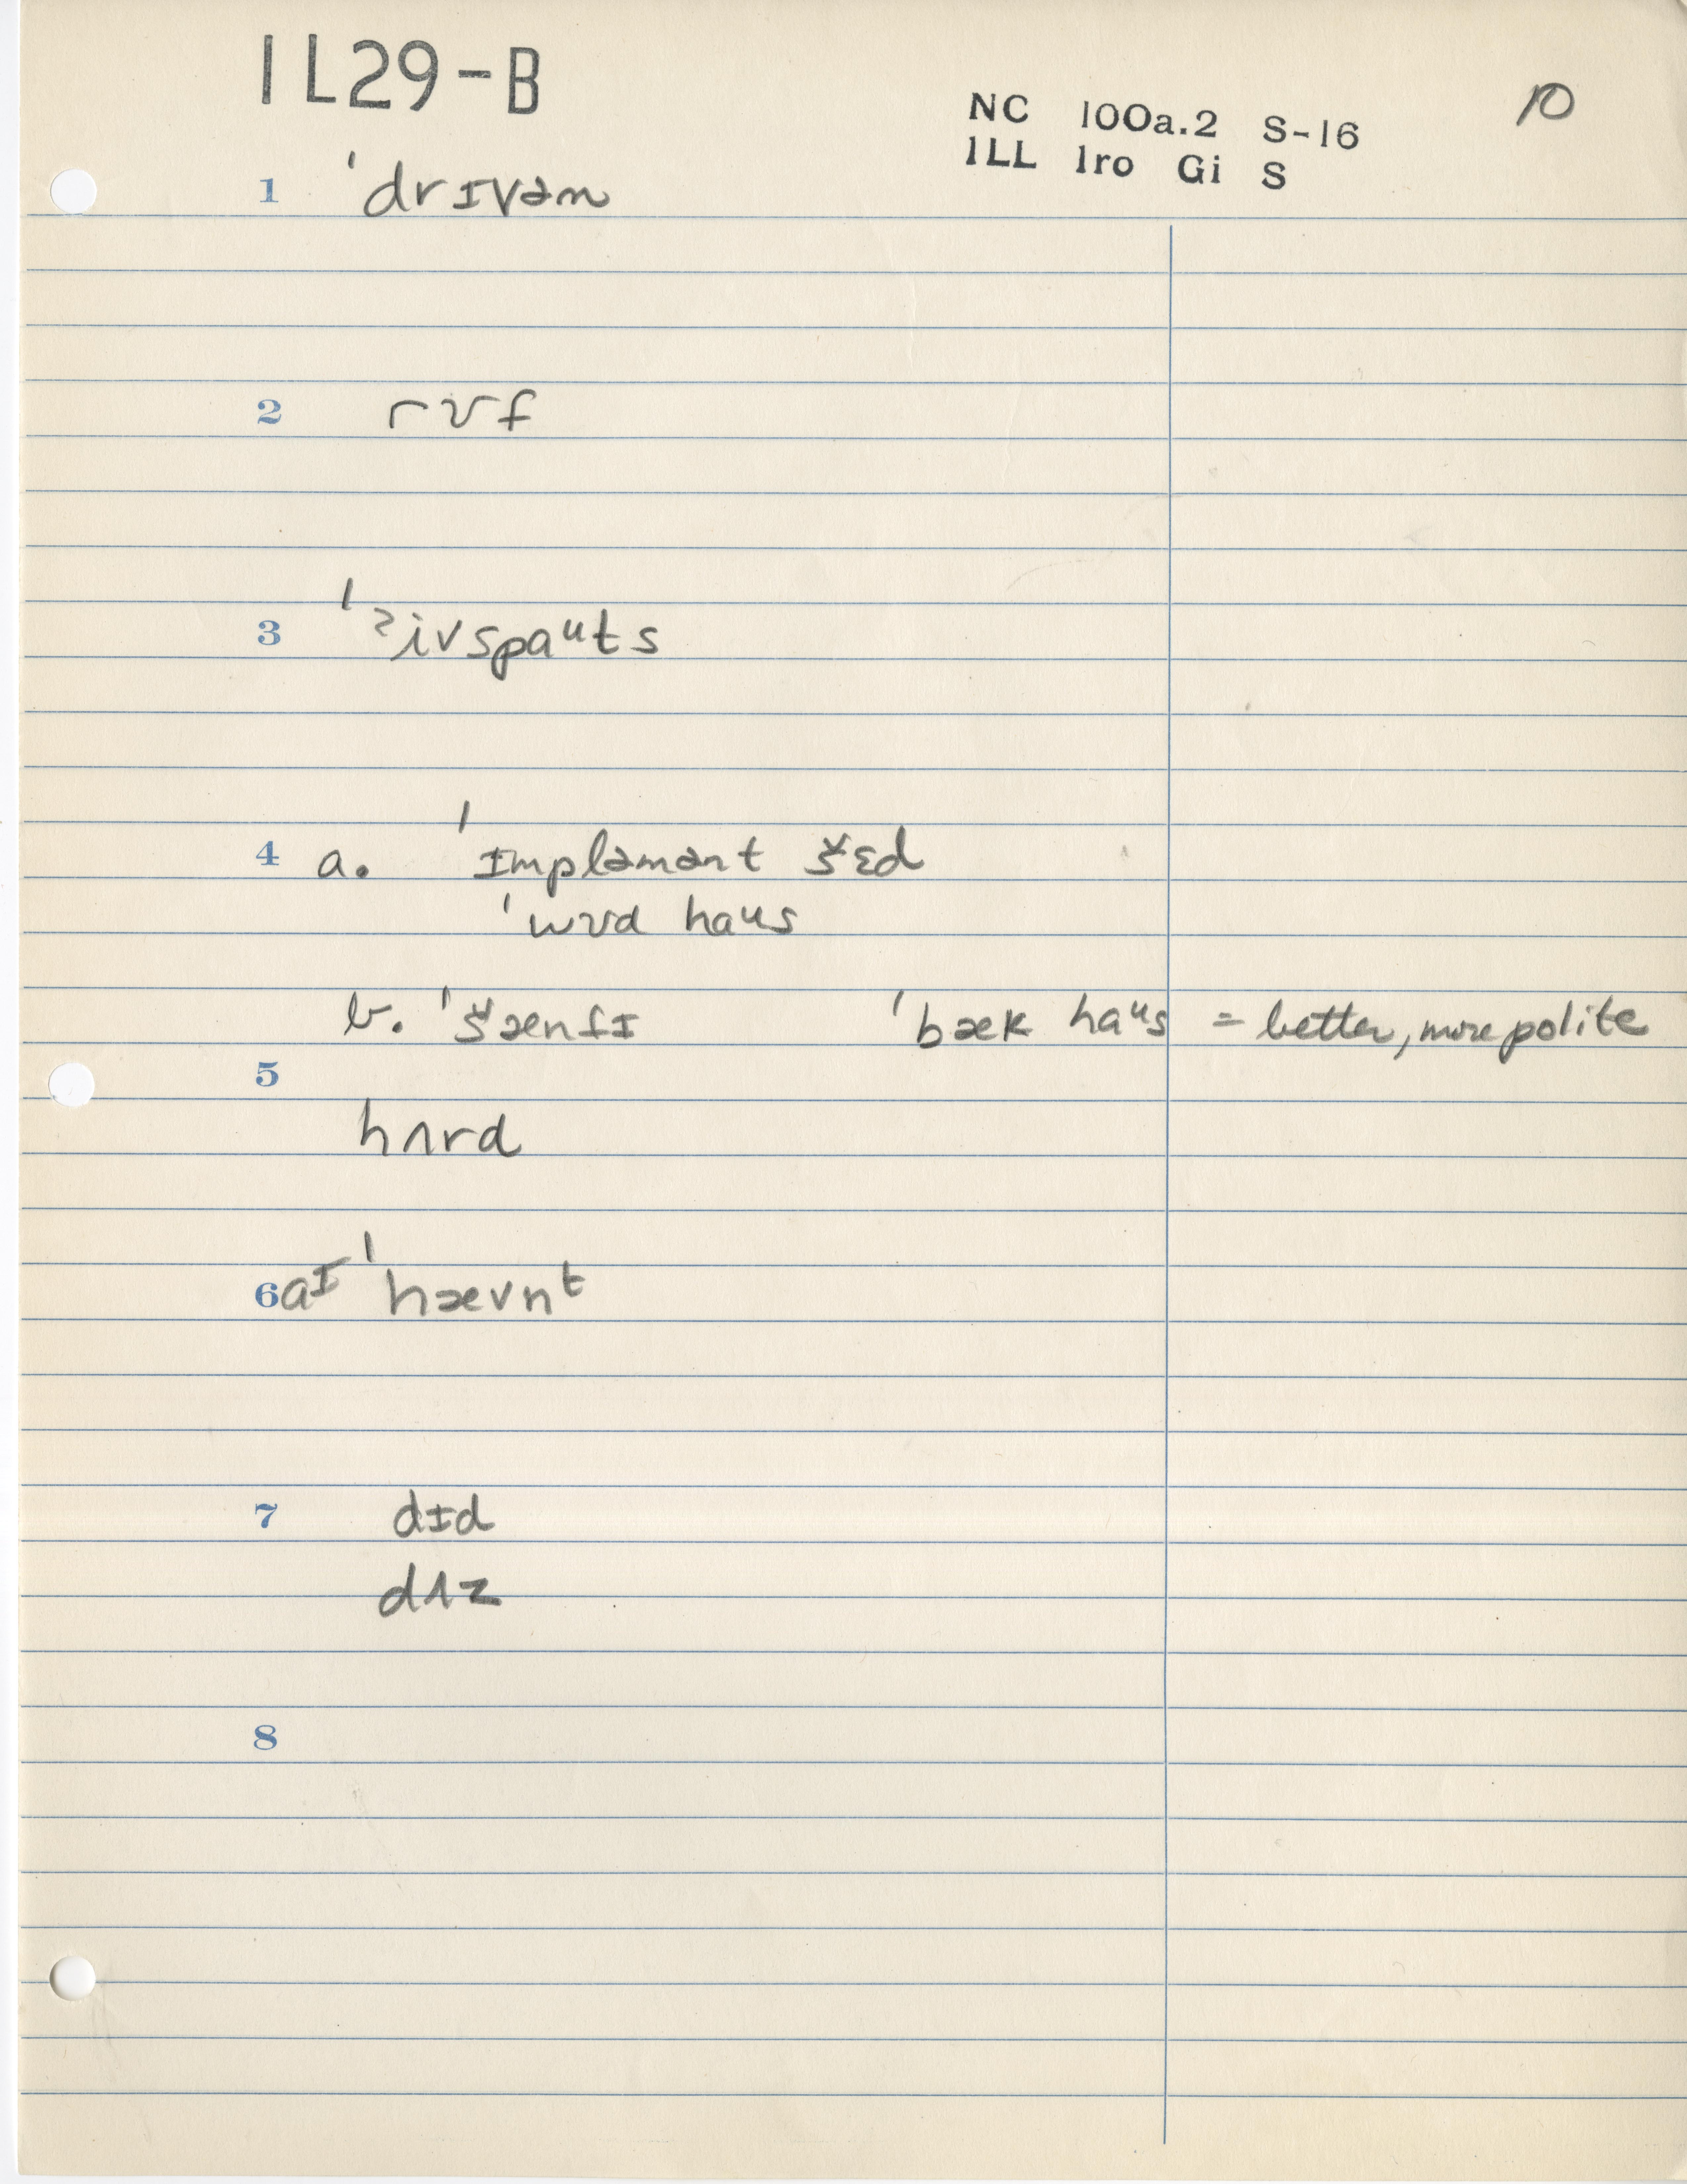 1L29-B
NC 100a.2 S-16
1LL 1ro Gi S
10
1 ˈdrɪvən
2 rʊf
3 ˈʔivspaᵘts
4 a. ˈɪmpləmənt š̌ɛd
ˈwʊd haus
b. ˈšænfɪ ˈbæk haᵘs = better, more polite
5
hʌrd
6 aᴵ ˈhævnᵗ
7 dɪd
dʌz
8